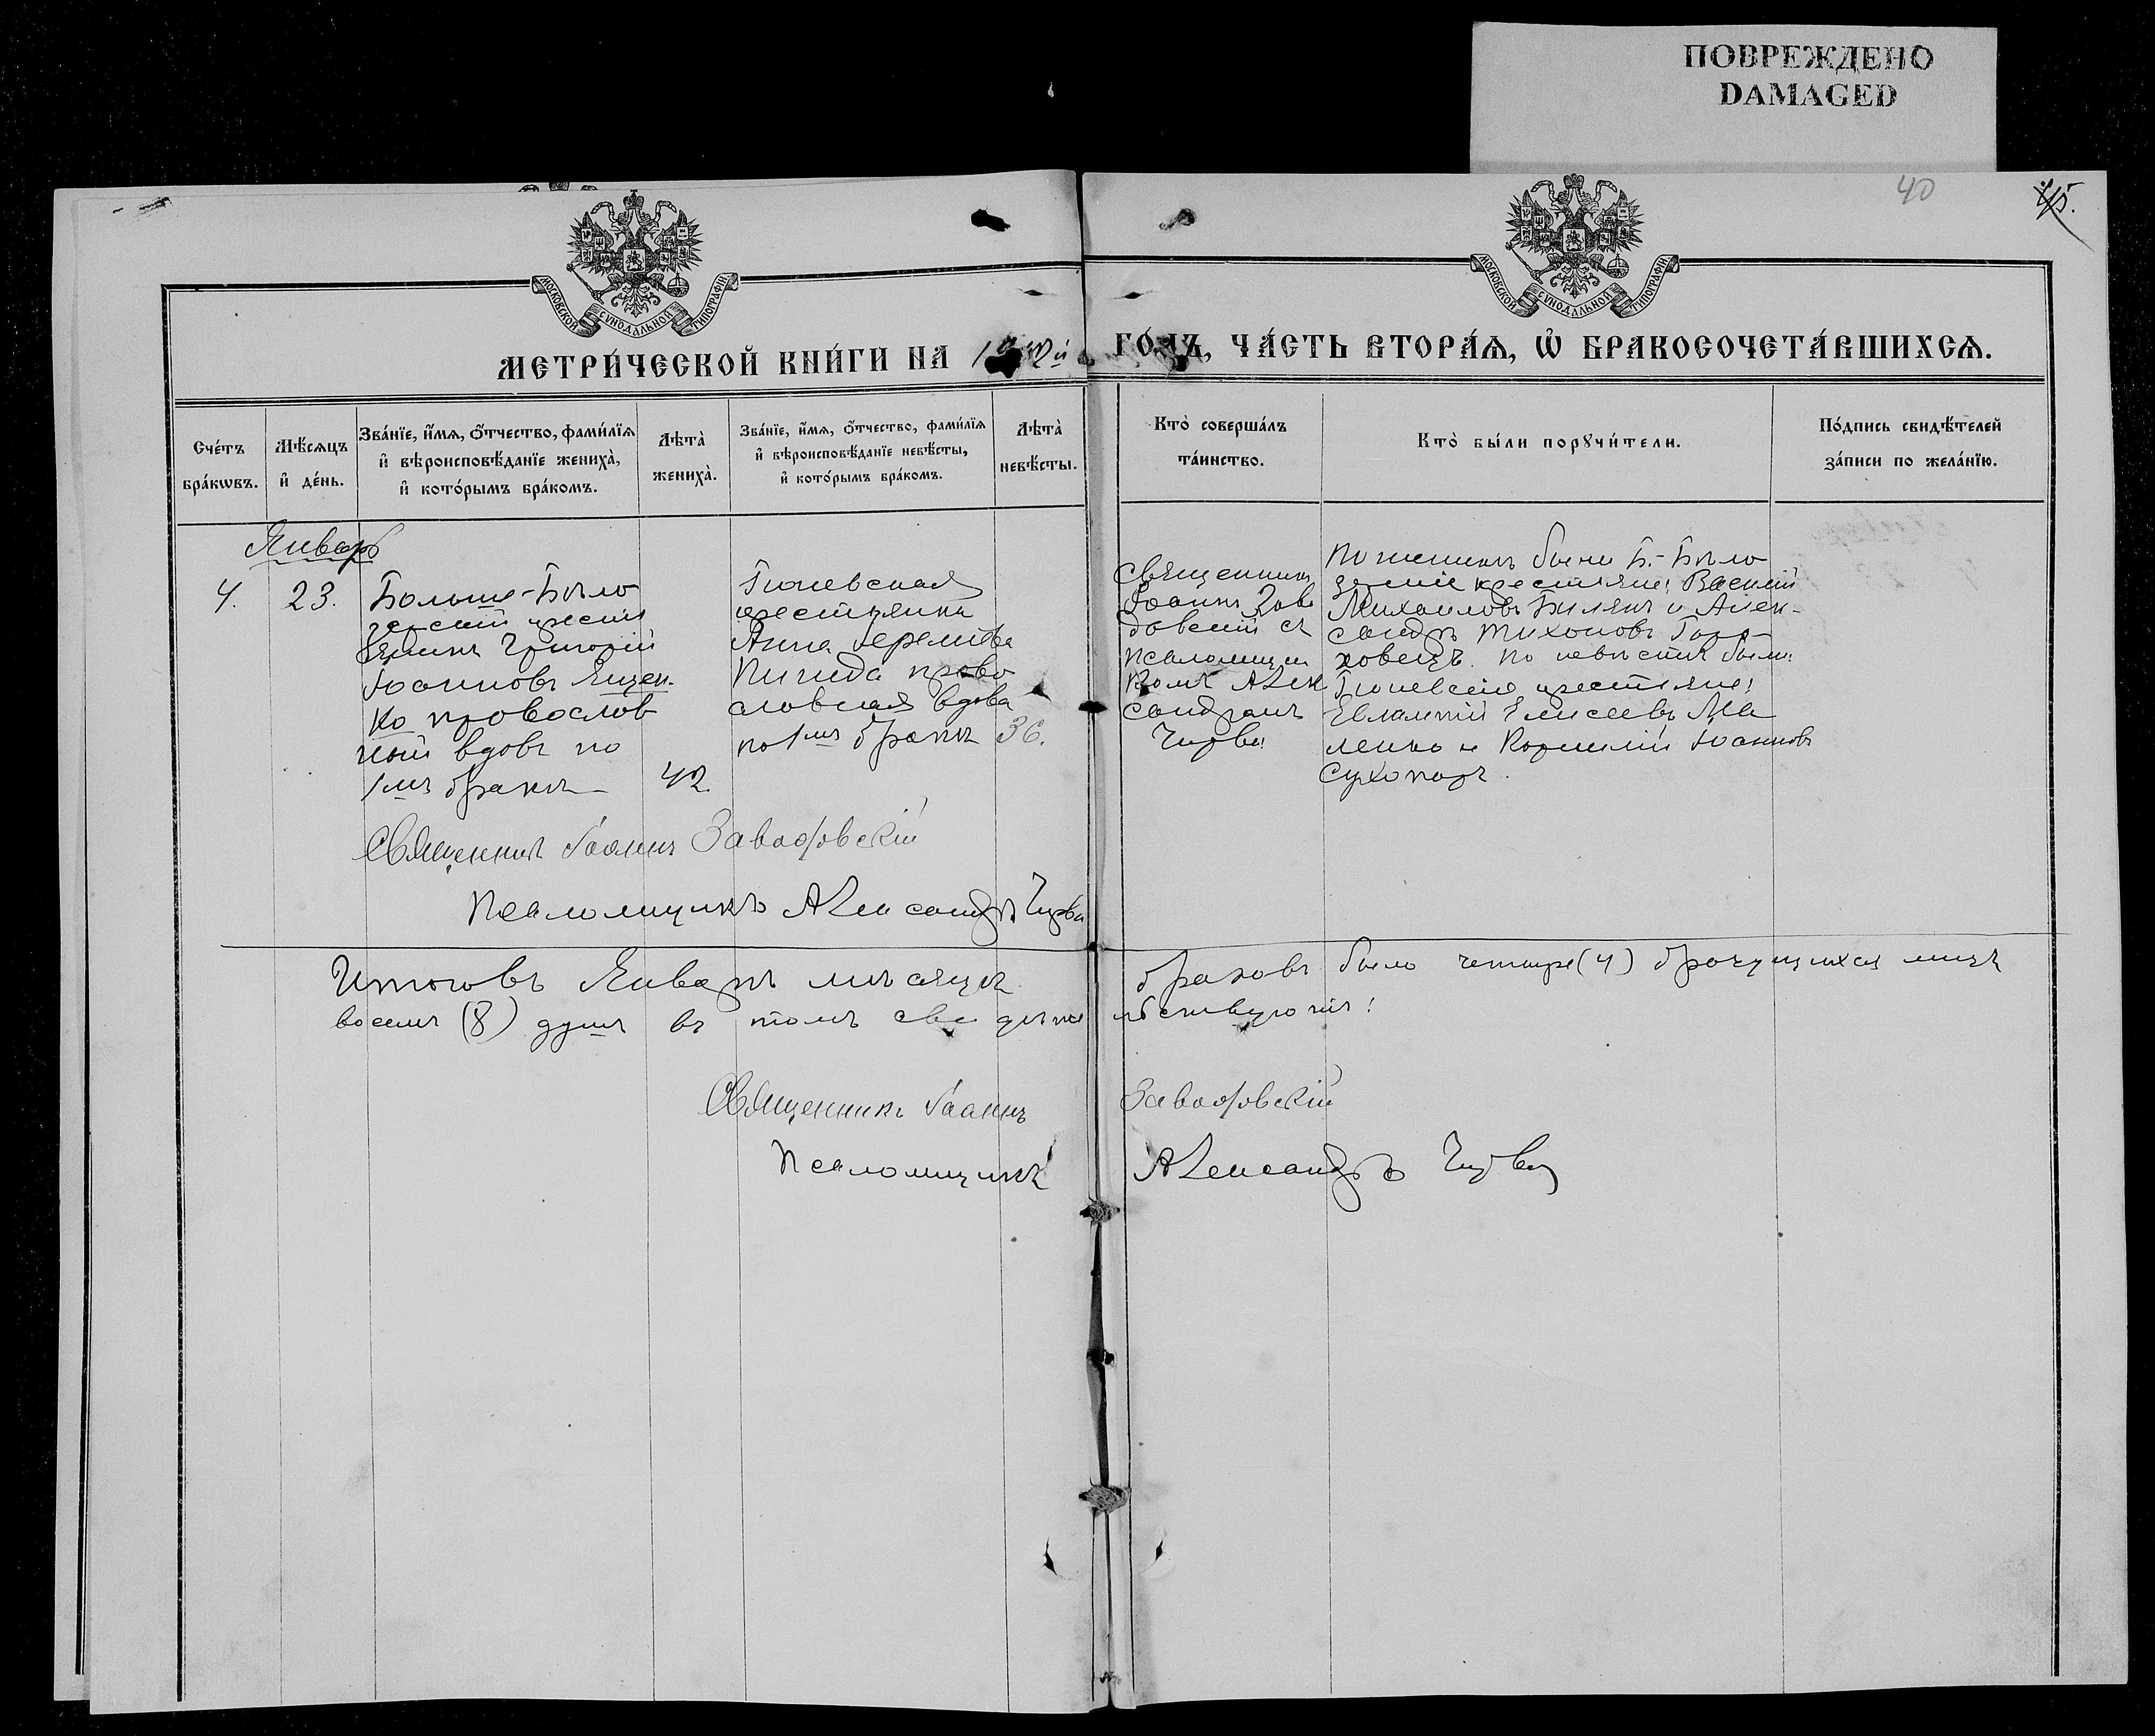 ПОВРЕЖДЕНО
DAMAGED
40
45.
МОСКОВСКОЙ СѴНОДАЛЬНОЙ ТИПОГРАФІИ
МОСКОВСКОЙ СѴНОДАЛЬНОЙ ТИПОГРАФІИ
МЕТРИ́ЧЕСКОЙ КНИ́ГИ НА
ГО́ДЪ, ЧА́СТЬ ВТОРА́Ѧ, Ѡ҆ БРАКОСОЧЕТА́ВШИХСѦ.
Сче́тъ бра́кѡвъ.
Мѣ́сѧцъ и҆ де́нь.
Зва́нїе, и҆́мѧ, ѻ҆́тчество, фами́лїѧ и҆ вѣроисповѣ́данїе жениха̀, и҆ кото́рымъ бра́комъ.
Лѣта̀ жениха̀.
Зва́нїе, и҆́мѧ, ѻ҆́тчество, фами́лїѧ и҆ вѣроисповѣ́данїе невѣ́сты, и҆ кото́рымъ бра́комъ.
Лѣта̀ невѣ́сты.
Кто̀ соверша́лъ та́инство.
Кто̀ бы́ли порꙋчи́тели.
По́дпись свидѣ́телей за́писи по жела́нїю.
Январь
4.
23.
Больше-Бѣло
зерскій крестья
янинъ Григорій
Іоанновъ Ящен-
ко православ
ный вдовъ по
1мъ бракѣ
42.
крестьянка
Анна
право
славная вдова
по 1мъ бракѣ
36.
Священникъ
Іоаннъ Зава
довскій съ
псаломщи
комъ Алек
сандромъ
Чирва
По женихѣ были Б.-Бѣло
зерскіе крестьяне: Василій
Михаиловъ Билякъ и Алек-
сандръ Тихоновъ Горо-
ховецъ. По невѣстѣ были:
крестьяне:
Евлампій Елисеевъ Ма
ленко и Корнилій Іоанновъ
Сухопаръ.
Священникъ Іоаннъ Завадовскій
Псаломщикъ Александръ Чирва
Итого въ Январѣ мѣсяцѣ браковъ было четыре (4) брачущихся лицъ
восемь (8) душъ въ томъ свидѣтельствуютъ:
Священникъ Іоаннъ Завадовскій
Псаломщикъ Александръ Чирва